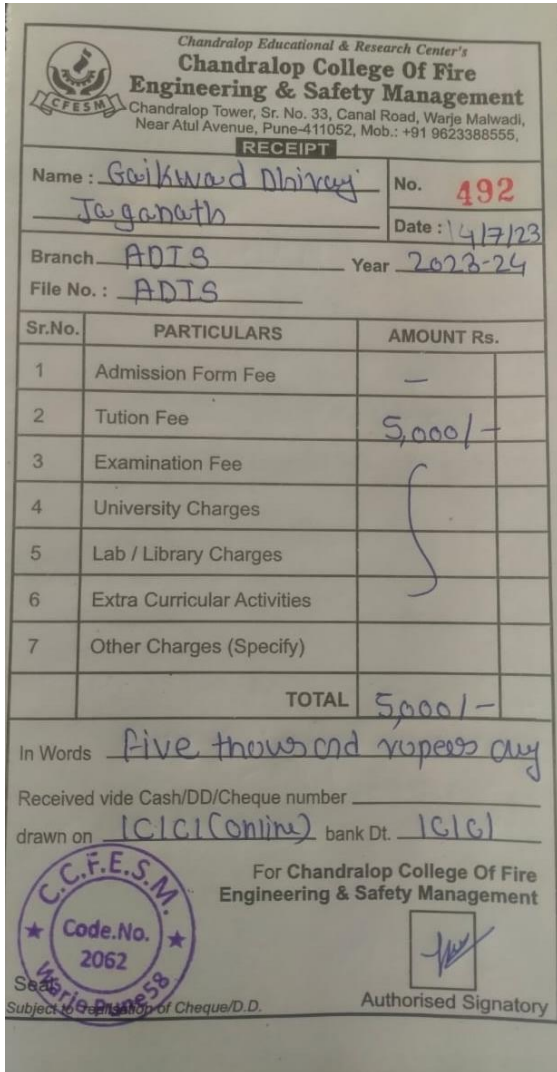 Chandralop Educational & Research Center's
Chandralop College Of Fire
Engineering & Safety Management
CFESM
Chandralop Tower, Sr. No. 33, Canal Road, Warje Malwadi,
Near Atul Avenue, Pune-411052, Mob.: +91 9623388555,
RECEIPT
Name : Gaikwad Dhiraj
Jaganath
No. 492
Date : 14/7/23
Branch ADIS Year 2023-24
File No. : ADIS
Sr.No. PARTICULARS AMOUNT Rs.
1 Admission Form Fee —
2 Tution Fee 5,000/-
3 Examination Fee
4 University Charges
5 Lab / Library Charges
6 Extra Curricular Activities
7 Other Charges (Specify)
TOTAL 5,000/-
In Words five thousand rupees
Received vide Cash/DD/Cheque number
drawn on ICICI (online) bank Dt. ICICI
For Chandralop College Of Fire
Engineering & Safety Management
C.C.F.E.S.M.
Code.No.
2062
Warje Pune58
Seal
Authorised Signatory
Subject to realisation of Cheque/D.D.